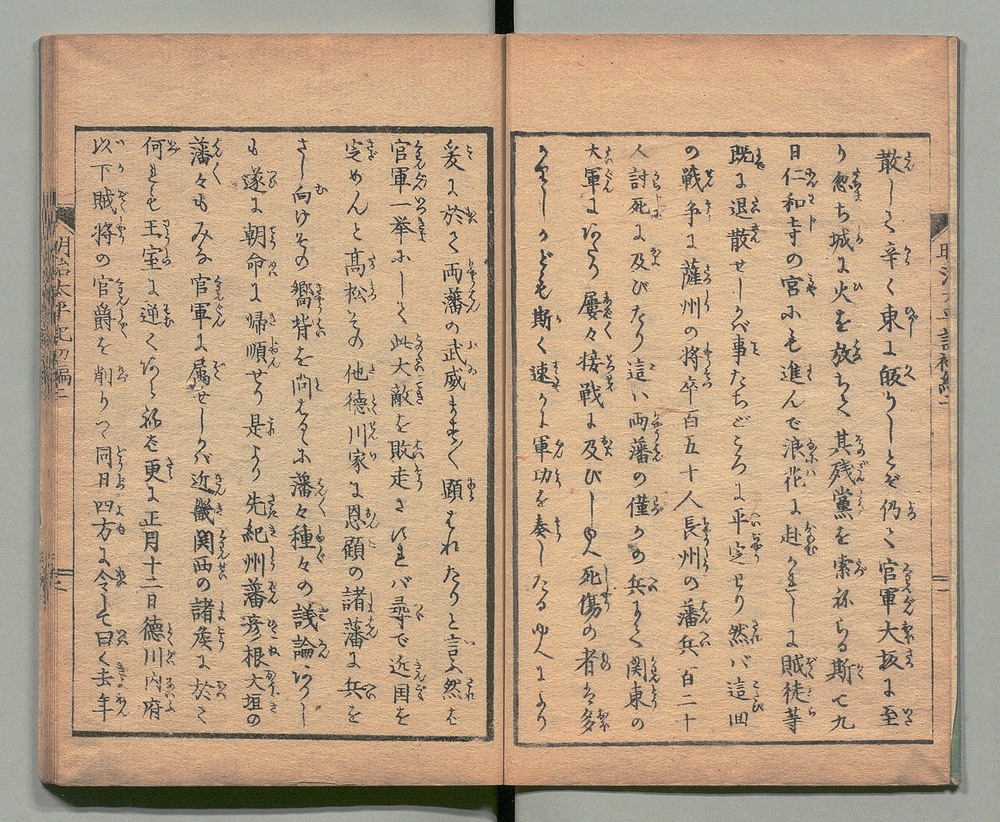 散して辛く東に皈りしとぞ仍て官軍大坂に至
り忽ち城に火を放ちて其残黨を索ねらる斯て九
日仁和寺の宮にも進んで浪花に赴かれしに賊徒等
既に退散せしかバ事たちどころに平定せり然バ這回
の戦争に薩州の将卒百五十人長州の藩兵百二十
人討死に及びたり這ハ両藩の僅かの兵にて関東の
大軍にあたり屡々接戦に及びしゆゑ死傷の者も多
かりしかども斯く速かに軍功を奏したるゆゑにより
爰に於て両藩の武威ます〳〵顕はれたりと言ふ然バ
官軍一挙にして此大敵を敗走させたれバ尋で近国を
定めんと高松その他徳川家に恩顧の諸藩に兵を
さし向けその嚮背を問はるゝに藩々種々の議論ありし
も遂に朝命に帰順せり是より先紀州藩彦根大垣の
藩々もみな官軍に属せしかバ近畿関西の諸侯に於て
何れも王室に逆くはあらねど更に正月十二日徳川内府
以下賊将の官爵を削りて同日四方に令して曰く去年
明治太平記初編二